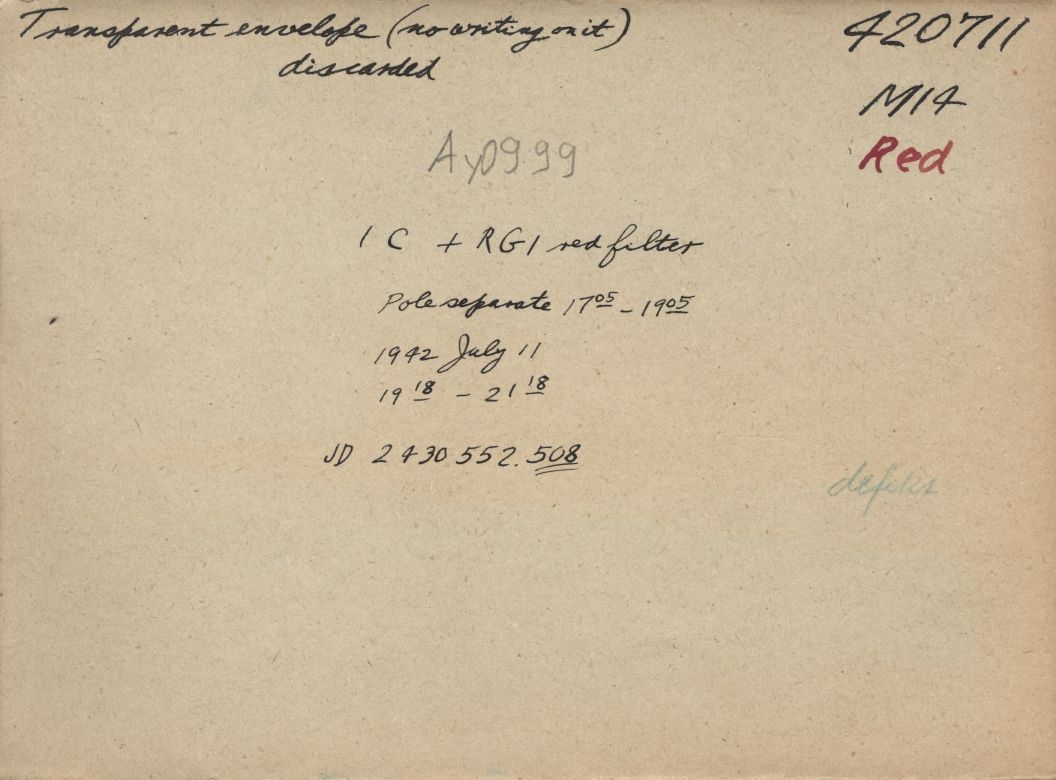 Transparent envelope (no writing on it)
discarded
420711
M14
Red
Ay0999
1 C + RG1 red filter
Pole separate 17 05 - 19 05
1942 July 11
19 18 - 21 18
JD 2430 552.508
defekt